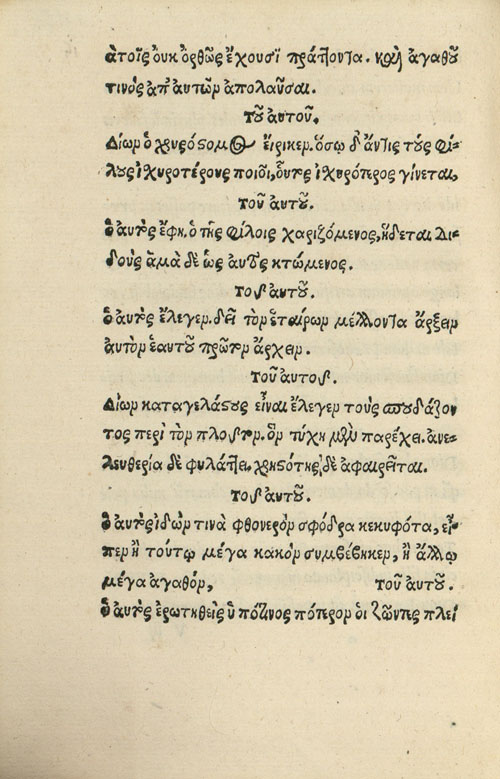 ἀτοῖς ὀυκ ὀρθῶς ἔχουσϊ πράττοντα. καὶ ἀγαθοῦ
τινὸς ἀπ' ἀυτῶν ἀπολαῦσαι.
τοῦ ἀυτοῦ.
Δίων ὁ χρυσόστομος ἔιρικεν. ὅσῳ δ' ἄν τις τοὺς φί-
λους ἰχυροτέρους ποιῇ, ὁυτὸς ἰχυρότερος γίνεται,
τοῦ ἀυτοῦ.
ὁ ἀυτὸς ἔφη. ὁ τοῖς φίλοις χαριζόμενος, ἥδεται δι-
δοὺς ἅμα δὲ ὡς ἀυτὸς κτώμενος.
τοῦ ἀυτοῦ.
ὁ ἀυτὸς ἔλεγεν. δεῖ τὸν ἑταίρων μέλλοντα ἄρξειν
ἀυτὸν ἑαυτοῦ πρῶτον ἄρχειν.
τοῦ ἀυτοῦ.
Δίων καταγελάστους εἶναι ἔλεγεν τοὺς σπουδάζον
τας περὶ τὸν πλοῦτον. ὃν τύχη μὲν παρέχει. ἀνε-
λευθερία δὲ φυλάττει. χρηστότης δὲ ἀφαιρεῖται.
τοῦ ἀυτοῦ.
ὁ ἀυτὸς ἰδὼν τινὰ φθονερὸν σφόδρα κεκυφότα, εἶ-
πεν ἢ τούτῳ μέγα κακὸν συμβέβηκεν, ἢ ἄλλῳ
μέγα ἀγαθόν, τοῦ ἀυτοῦ.
ὁ ἀυτὸς ἐρωτηθεὶς ὑπό τινος πότερον ὁι ζῶντες πλεί